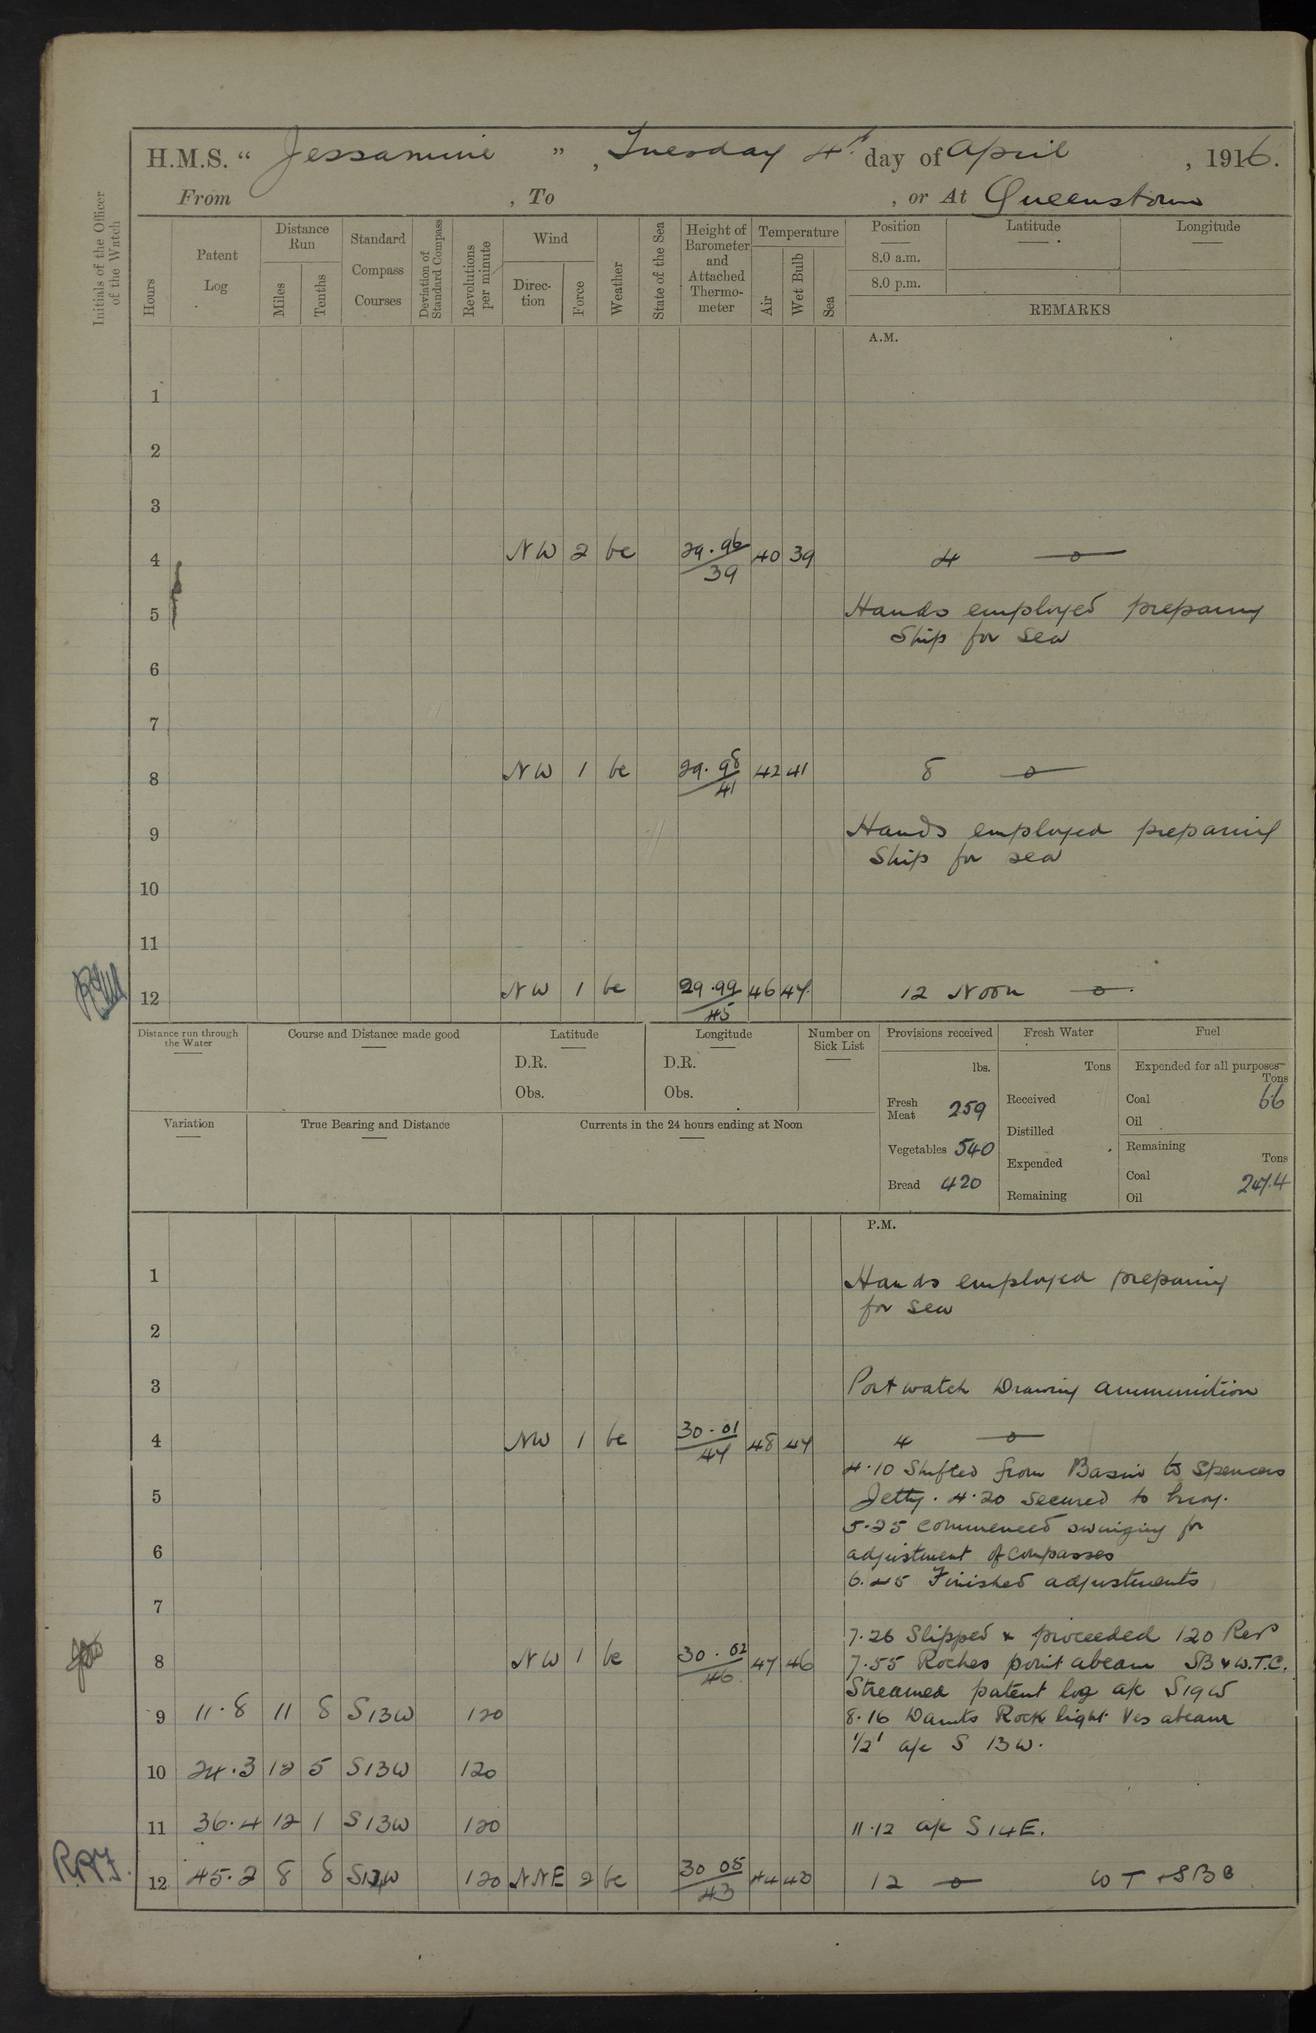 H.M.S. “ Jessamine ” , Tuesday 4th day of April , 1916.
From , To , or At Queenstown
Initials of the Officer of the Watch
Hours
Patent Log
Distance Run
Miles
Tenths
Standard Compass Courses
Deviation of Standard Compass
Revolutions per minute
Wind
Direction
Force
Weather
State of the Sea
Height of Barometer and Attached Thermometer
Temperature
Air
Wet Bulb
Sea
Position Latitude Longitude
8.0 a.m.
8.0 p.m.
REMARKS
A.M.
1
2
3
4 NW 2 bc 29.96/39 40 39 4 —o—
5 Hands employed preparing
Ship for sea
6
7
8 NW 1 bc 29.98/41 42 41 8 —o—
9 Hands employed preparing
Ship for sea
10
11
12 NW 1 bc 29.99/45 46 47 12 Noon —o—.
Distance run through the Water
Course and Distance made good
Latitude
D.R.
Obs.
Longitude
D.R.
Obs.
Number on Sick List
Provisions received
lbs.
Fresh Meat 259
Vegetables 540
Bread 420
Fresh Water
Tons
Received
Distilled
Expended
Remaining
Fuel
Expended for all purposes—
Tons
Coal 6.6
Oil
Remaining
Tons
Coal 247.4
Oil
Variation
True Bearing and Distance
Currents in the 24 hours ending at Noon
P.M.
1 Hands employed preparing
for sea
2
3 Port watch Drawing ammunition
4 NW 1 bc 30.01/47 48 47 4 —o—
4.10 Shifted from Basin to Spencers
5 Jetty. 4.20 secured to buoy.
5.25 commenced swinging for
6 adjustment of compasses
6.45 Finished adjustments
7
7.26 Slipped & proceeded 120 Revs
8 NW 1 bc 30.02/46 47 46 7.55 Roches point abeam SB & W.T.C.
Streamed patent log a/c S19W
9 11.8 11 8 S13W 120 8.16 Daunts Rock light Ves abeam
1/2' a/c S 13W.
10 24.3 12 5 S13W 120
11 36.4 12 1 S13W 120 11.12 a/c S14E.
12 45.2 8 8 120 NNE 2 bc 30 05/43 44 43 12 —o— WT & SB